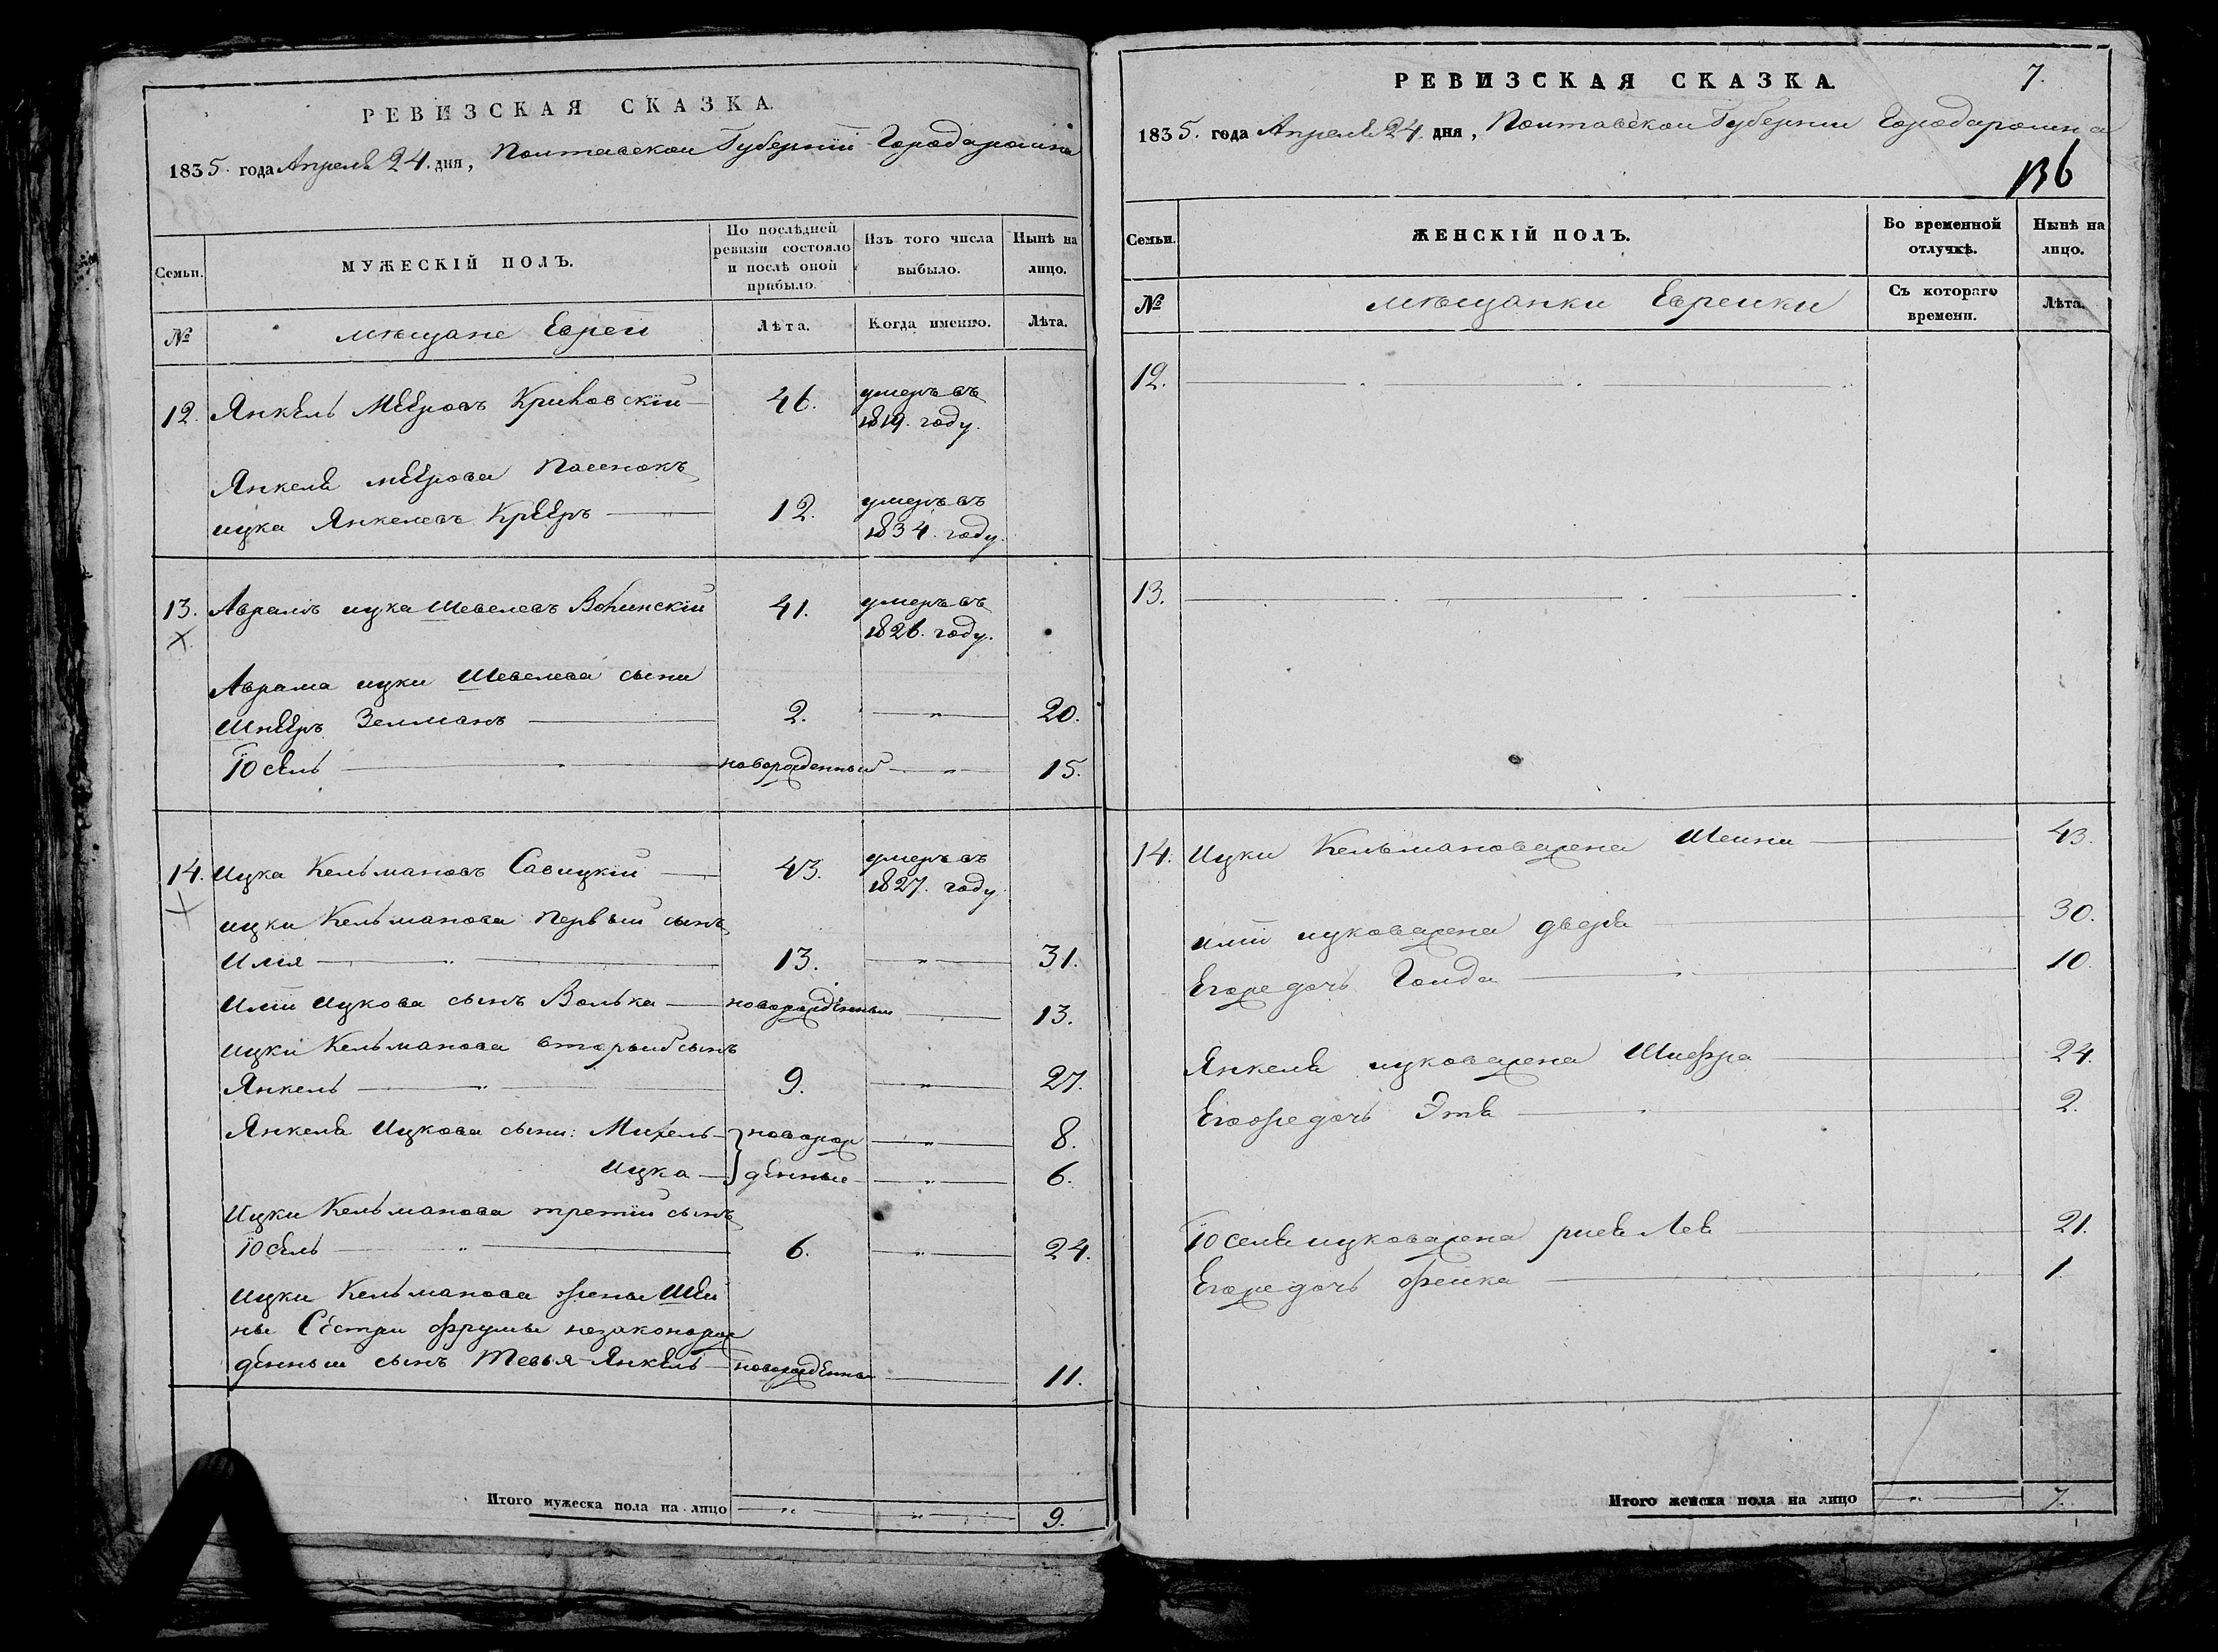 РЕВИЗСКАЯ СКАЗКА.
1835. года Апреля 24. дня, Полтавской Губернии Города
МУЖЕСКІЙ ПОЛЪ.
Семьи.
По послѣдней ревизіи состояло и послѣ оной прибыло.
Изъ того числа выбыло.
Нынѣ на лицо.
№
мѣщане Евреи
Лѣта.
Когда именно.
Лѣта.
12. Янкель Мееровъ 46. умеръ въ
1819. году.
Янкеля Меерова Пасенокъ
ицка Янкелевъ 12. умеръ въ
1834. году.
13. Аврамъ ицка Шевелевъ 41. умеръ въ
1826. году.
Аврама ицки Шевелева сыни
Шнееръ Зелманъ 2. „ 20.
Іосель новорожденный „ 15.
14. Ицка Кельмановъ Савицкій 43. умеръ въ
1827. году.
ицки Кельманова первый сынъ
Илія 13. „ 31.
Иліи Ицкова сынъ Волька новорожденный 13.
Ицки Кельманова вторый сынъ
Янкель 9. „ 27.
Янкеля Ицкова сыни: Михель новорож „ 8.
Ицка денные „ 6.
Ицки Кельманова третій сынъ
Іосель 6. „ 24.
Ицки Кельманова жены Шей
ны Сестры Фрумы незаконорож
денный сынъ Тевья-Янкель новорожденны 11.
Итого мужеска пола на лицо „ „ 9.
РЕВИЗСКАЯ СКАЗКА. 7.
1835. года Апреля 24. дня, Полтавской Губернии Города
136
Семьи.
ЖЕНСКІЙ ПОЛЪ.
Во временной отлучкѣ.
Нынѣ на лицо.
№
мѣщанки Еврейки
Съ котораго времени.
Лѣта.
12.
13.
14. Ицки Кельманова жена Шейна 43.
Иліи ицкова жена двера 30.
Егоже дочь Голда 10.
Янкеля ицкова жена Шифра 24.
Егоже дочь Этя 2.
Іоселя ицкова жена 21.
Егоже дочь Фейка 1
Итого женска пола на лицо „ 7.